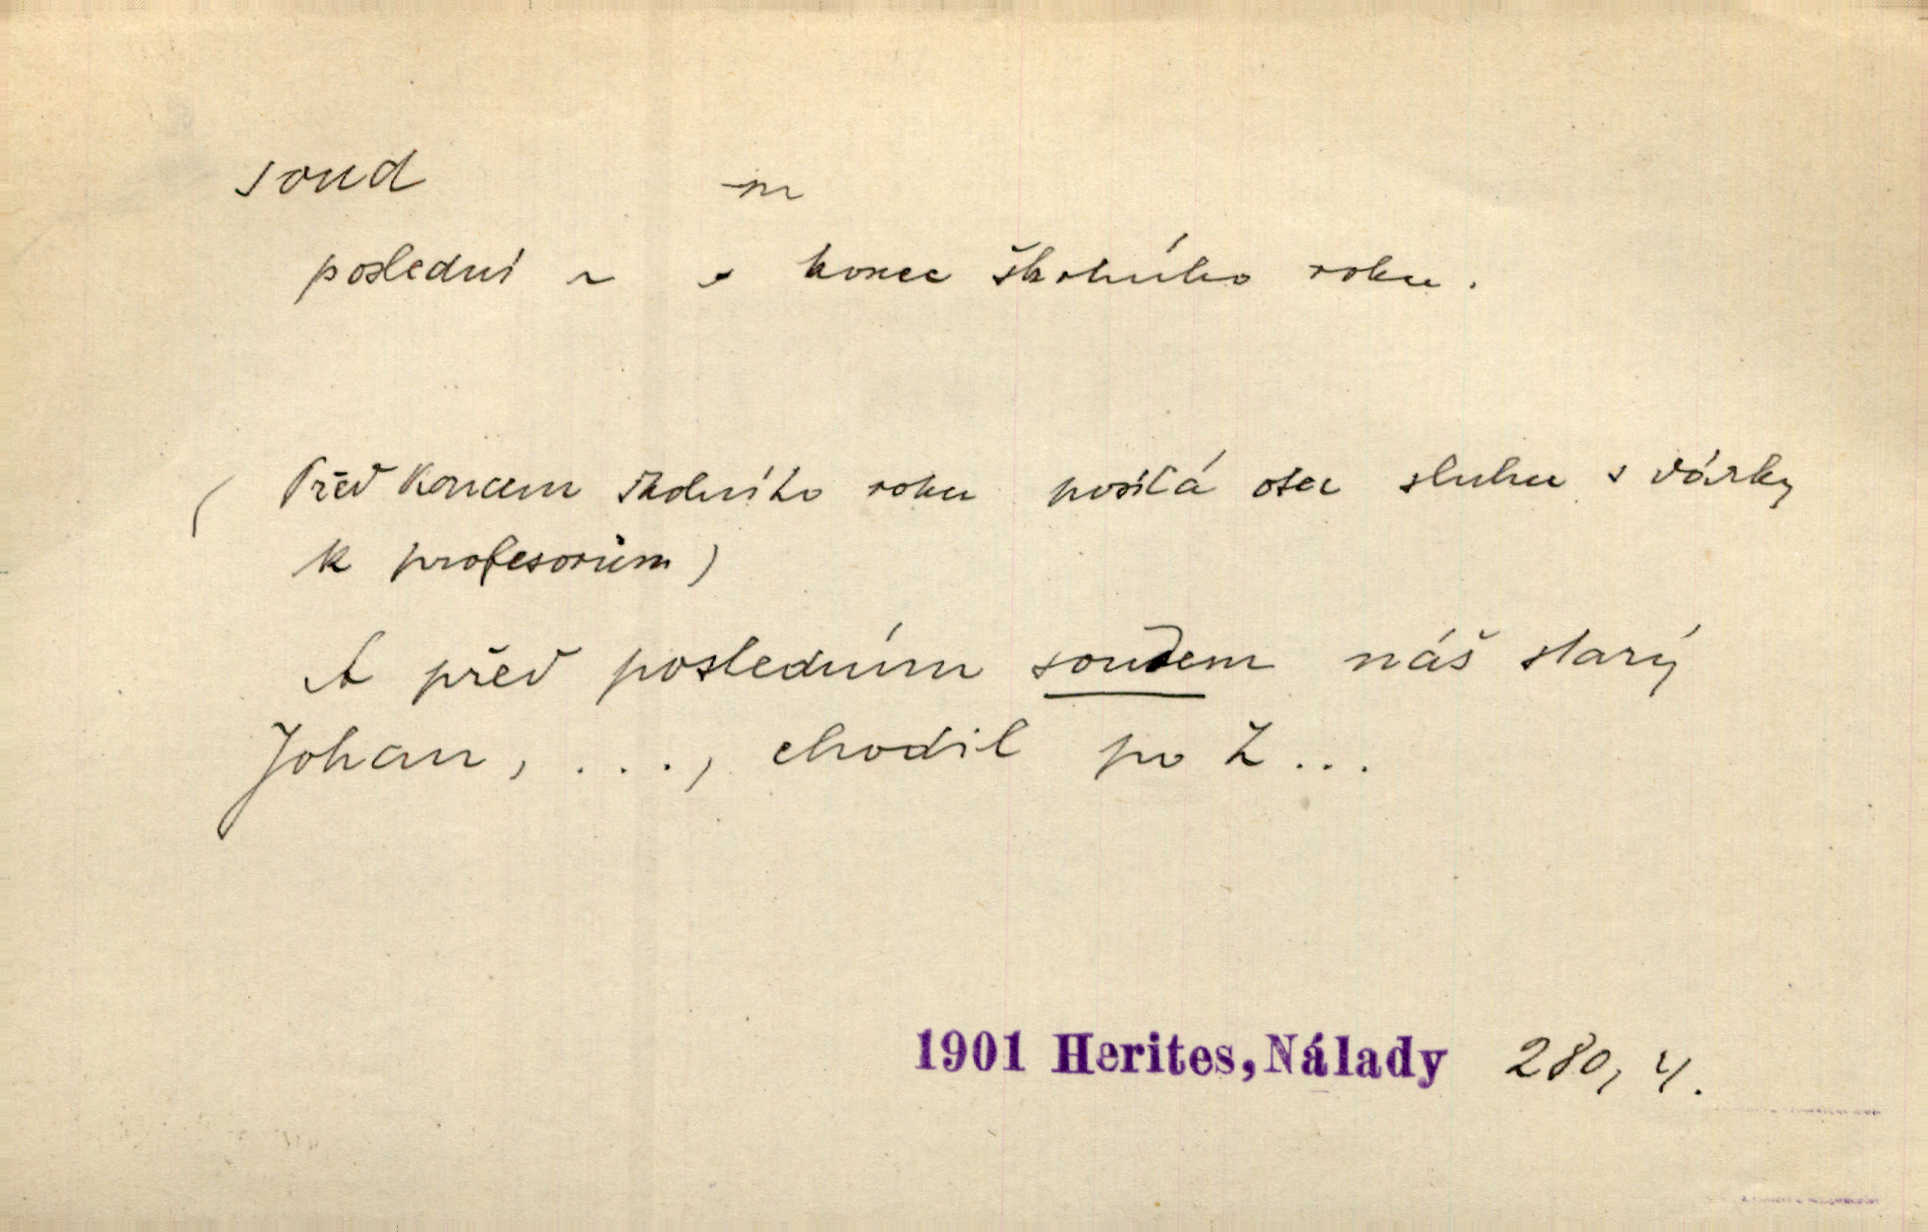 soud -m
poslední ~ = konec školního roku.
(Před koncem školního roku posílá otec sluhu s dárky
k profesorům)
A před posledním soudem náš starý
Johan, ..., chodil po Ž...
1901 Herites, Nálady 280, 4.